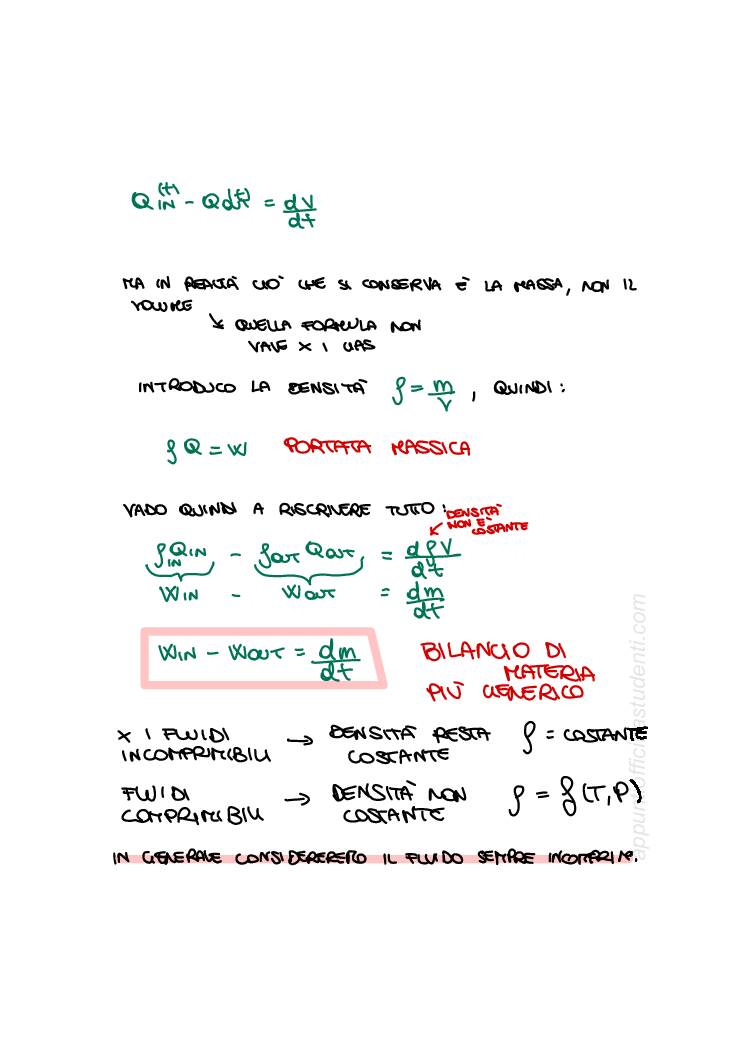 Q_IN^(t) - Q_OUT^(t) = dV/dt
MA IN REALTÀ CIÒ CHE SI CONSERVA È LA MASSA, NON IL
VOLUME
↘ QUELLA FORMULA NON
VALE X I GAS
INTRODUCO LA DENSITÀ ρ = m/V , QUINDI:
ρQ = W PORTATA MASSICA
VADO QUINDI A RISCRIVERE TUTTO:
DENSITÀ
NON È
COSTANTE
ρ_IN Q_IN - ρ_OUT Q_OUT = dρV/dt
W_IN - W_OUT = dm/dt
W_IN - W_OUT = dm/dt
BILANCIO DI
MATERIA
PIÙ GENERICO
X I FLUIDI
INCOMPRIMIBILI → DENSITÀ RESTA
COSTANTE
ρ = COSTANTE
FLUIDI
COMPRIMIBILI → DENSITÀ NON
COSTANTE
ρ = f(T,P)
IN GENERALE CONSIDEREREMO IL FLUIDO SEMPRE INCOMPRIM.